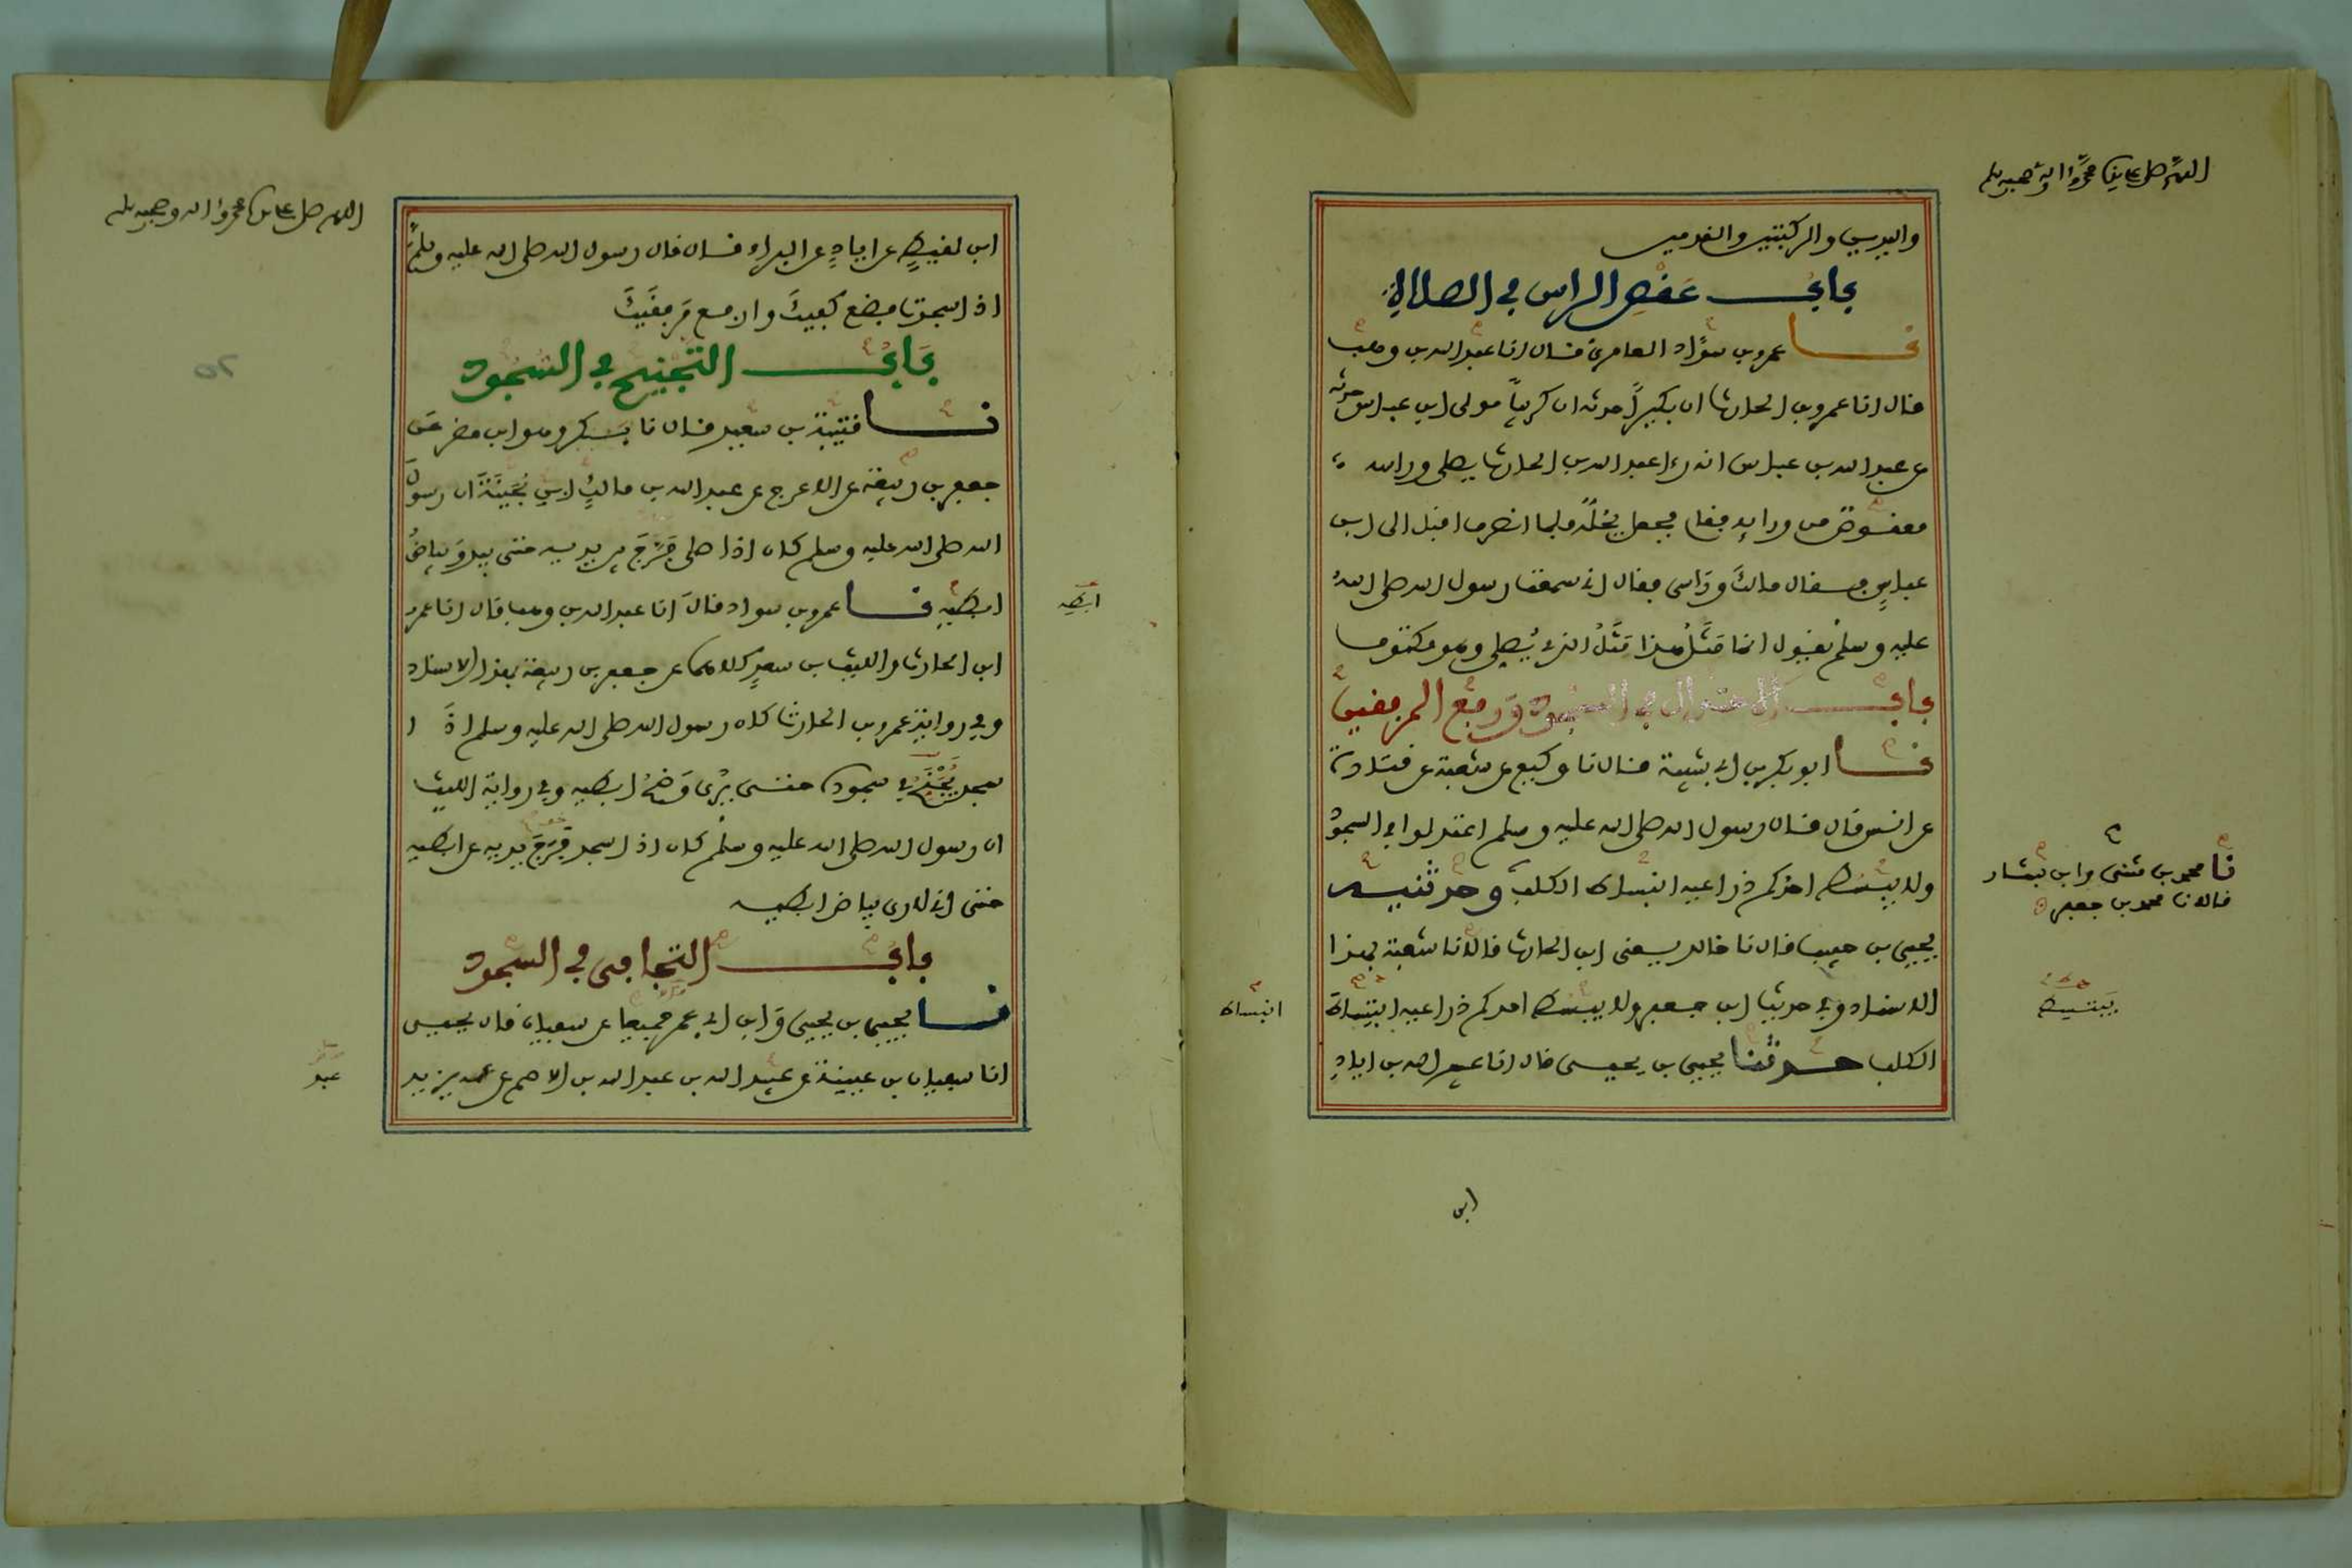 اللهم صل على سيدنا محمد واله وصحبه وسلم
واليدين والركبتين والقدمين
باب عقص الراس في الصلاة
نا عمرو بن سواد العامري قال انا عبد الله بن وهب
قال انا عمرو بن الحارث ان بكيرا حدثه ان كريبا مولى ابن عباس حدثه
عن عبد الله بن عباس انه رءا عبد الله بن الحارث يصلي وراسه
معقوص من ورايه فقام فجعل يحله فلما انصرف اقبل الى ابن
عباس فقال مالك وراسي فقال اني سمعت رسول الله صلى الله
عليه وسلم يقول انما مثل هذا مثل الذي يصلي وهو مكتوف
باب الاعتدال في السجود ورفع المرفقين
نا ابو بكر بن ابي شيبة قال نا وكيع عن شعبة عن قتادة
عن انس قال قال رسول الله صلى الله عليه وسلم اعتدلوا في السجود
ولا يبسط احدكم ذراعيه انبساط الكلب وحدثنيه
يحيى بن حبيب قال نا خالد يعني ابن الحارث قالا نا شعبة بهذا
الاسناد وفي حديث ابن جعفر ولا يبسط احدكم ذراعيه انبساط
الكلب حدثنا يحيى بن يحيى قال انا عبيد الله بن اياد
نا محمد بن مثنى وابن بشار
قالا نا محمد بن جعفر
يبتسط
انبساط
ابن
اللهم صل على سيدنا محمد واله وصحبه وسلم
ابن لقيط عن اياد عن البراء قال قال رسول الله صلى الله عليه وسلم
اذا سجدت فضع كفيك وارفع مرفقيك
باب التجنيح في السجود
نا قتيبة بن سعيد قال نا بكر وهو ابن مضر عن
جعفر بن ربيعة عن الاعرج عن عبد الله بن مالك ابن بحينة ان رسول
الله صلى الله عليه وسلم كان اذا صلى فرج بين يديه حتى يبدو بياض
ابطيه نا عمرو بن سواد قال انا عبد الله بن وهب قال انا عمرو
ابن الحارث والليث بن سعد كلاهما عن جعفر بن ربيعة بهذا الاسناد
وفي رواية عمرو بن الحارث كان رسول الله صلى الله عليه وسلم اذا
سجد يجنح في سجوده حتى يرى وضح ابطيه وفي رواية الليث
ان رسول الله صلى الله عليه وسلم كان اذا سجد فرج يديه عن ابطيه
حتى اني لارى بياض ابطيه
باب التجافي في السجود
نا يحيى بن يحيى وابن ابي عمر جميعا عن سفيان قال يحيى
انا سفيان بن عيينة عن عبيد الله بن عبد الله بن الاصم عن عمه يزيد
ابطيه
عبد